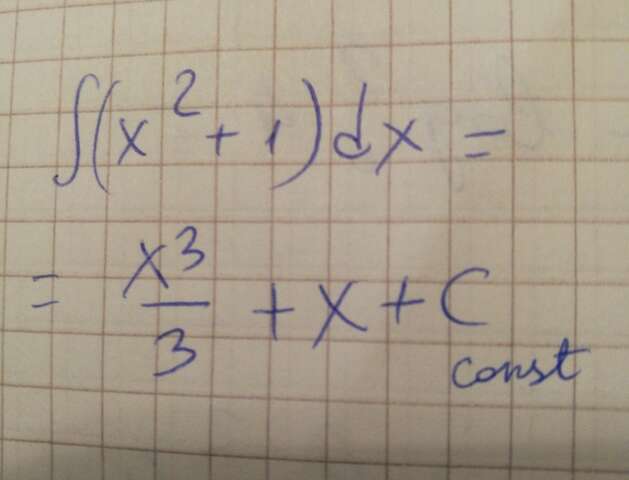 ∫(x²+1)dx =
= x³/3 + x + C
const